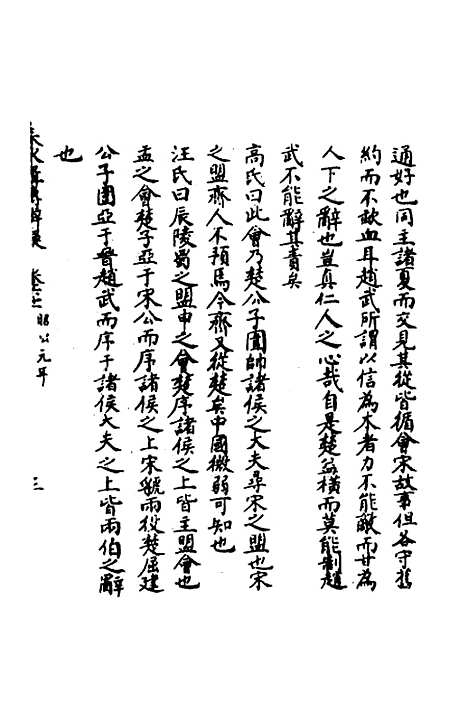 通好也同主諸夏而交見其從皆循會宋故事但各守舊
約而不歃血耳趙武所謂以信為本者力不能敵而甘為
人下之辭也豈真仁人之心哉自是楚益橫而莫能制趙
武不能辭其責矣
高氏曰此會乃楚公子圍帥諸侯之大夫尋宋之盟也宋
之盟齊人不預焉今齊又從楚矣中國微弱可知也
汪氏曰辰陵蜀之盟申之會楚序諸侯之上皆主盟會也
孟之會楚子亞于宋公而序諸侯之上宋虢兩役楚屈建
公子圍亞于晉趙武而序于諸侯大夫之上皆兩伯之辭
也
春秋 卷 昭公元年 三